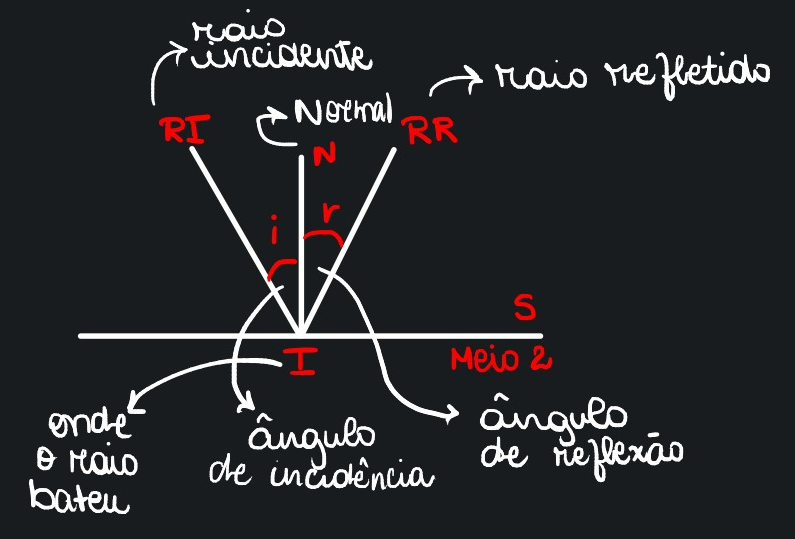 raio
incidente
raio refletido
Normal
RI
N
RR
i
r
S
I
Meio 2
onde
o raio
bateu
ângulo
de incidência
ângulo
de reflexão